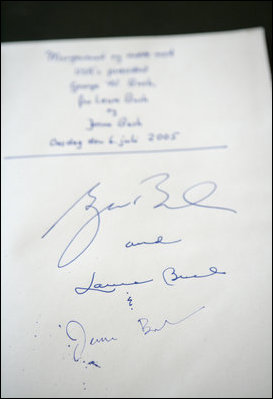 Morgenmat og møde med
USA's præsident
George W. Bush,
fru Laura Bush
og
Jenna Bush
Onsdag den 6. juli 2005
and
Laura Bush
&
Jenna Bush